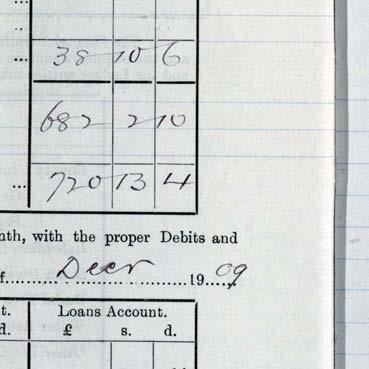 ...
... 38 10 6
682 2 10
... 720 13 4
nth, with the proper Debits and
f.......... Decr .......... 19 09
t. Loans Account.
d. £ s. d.